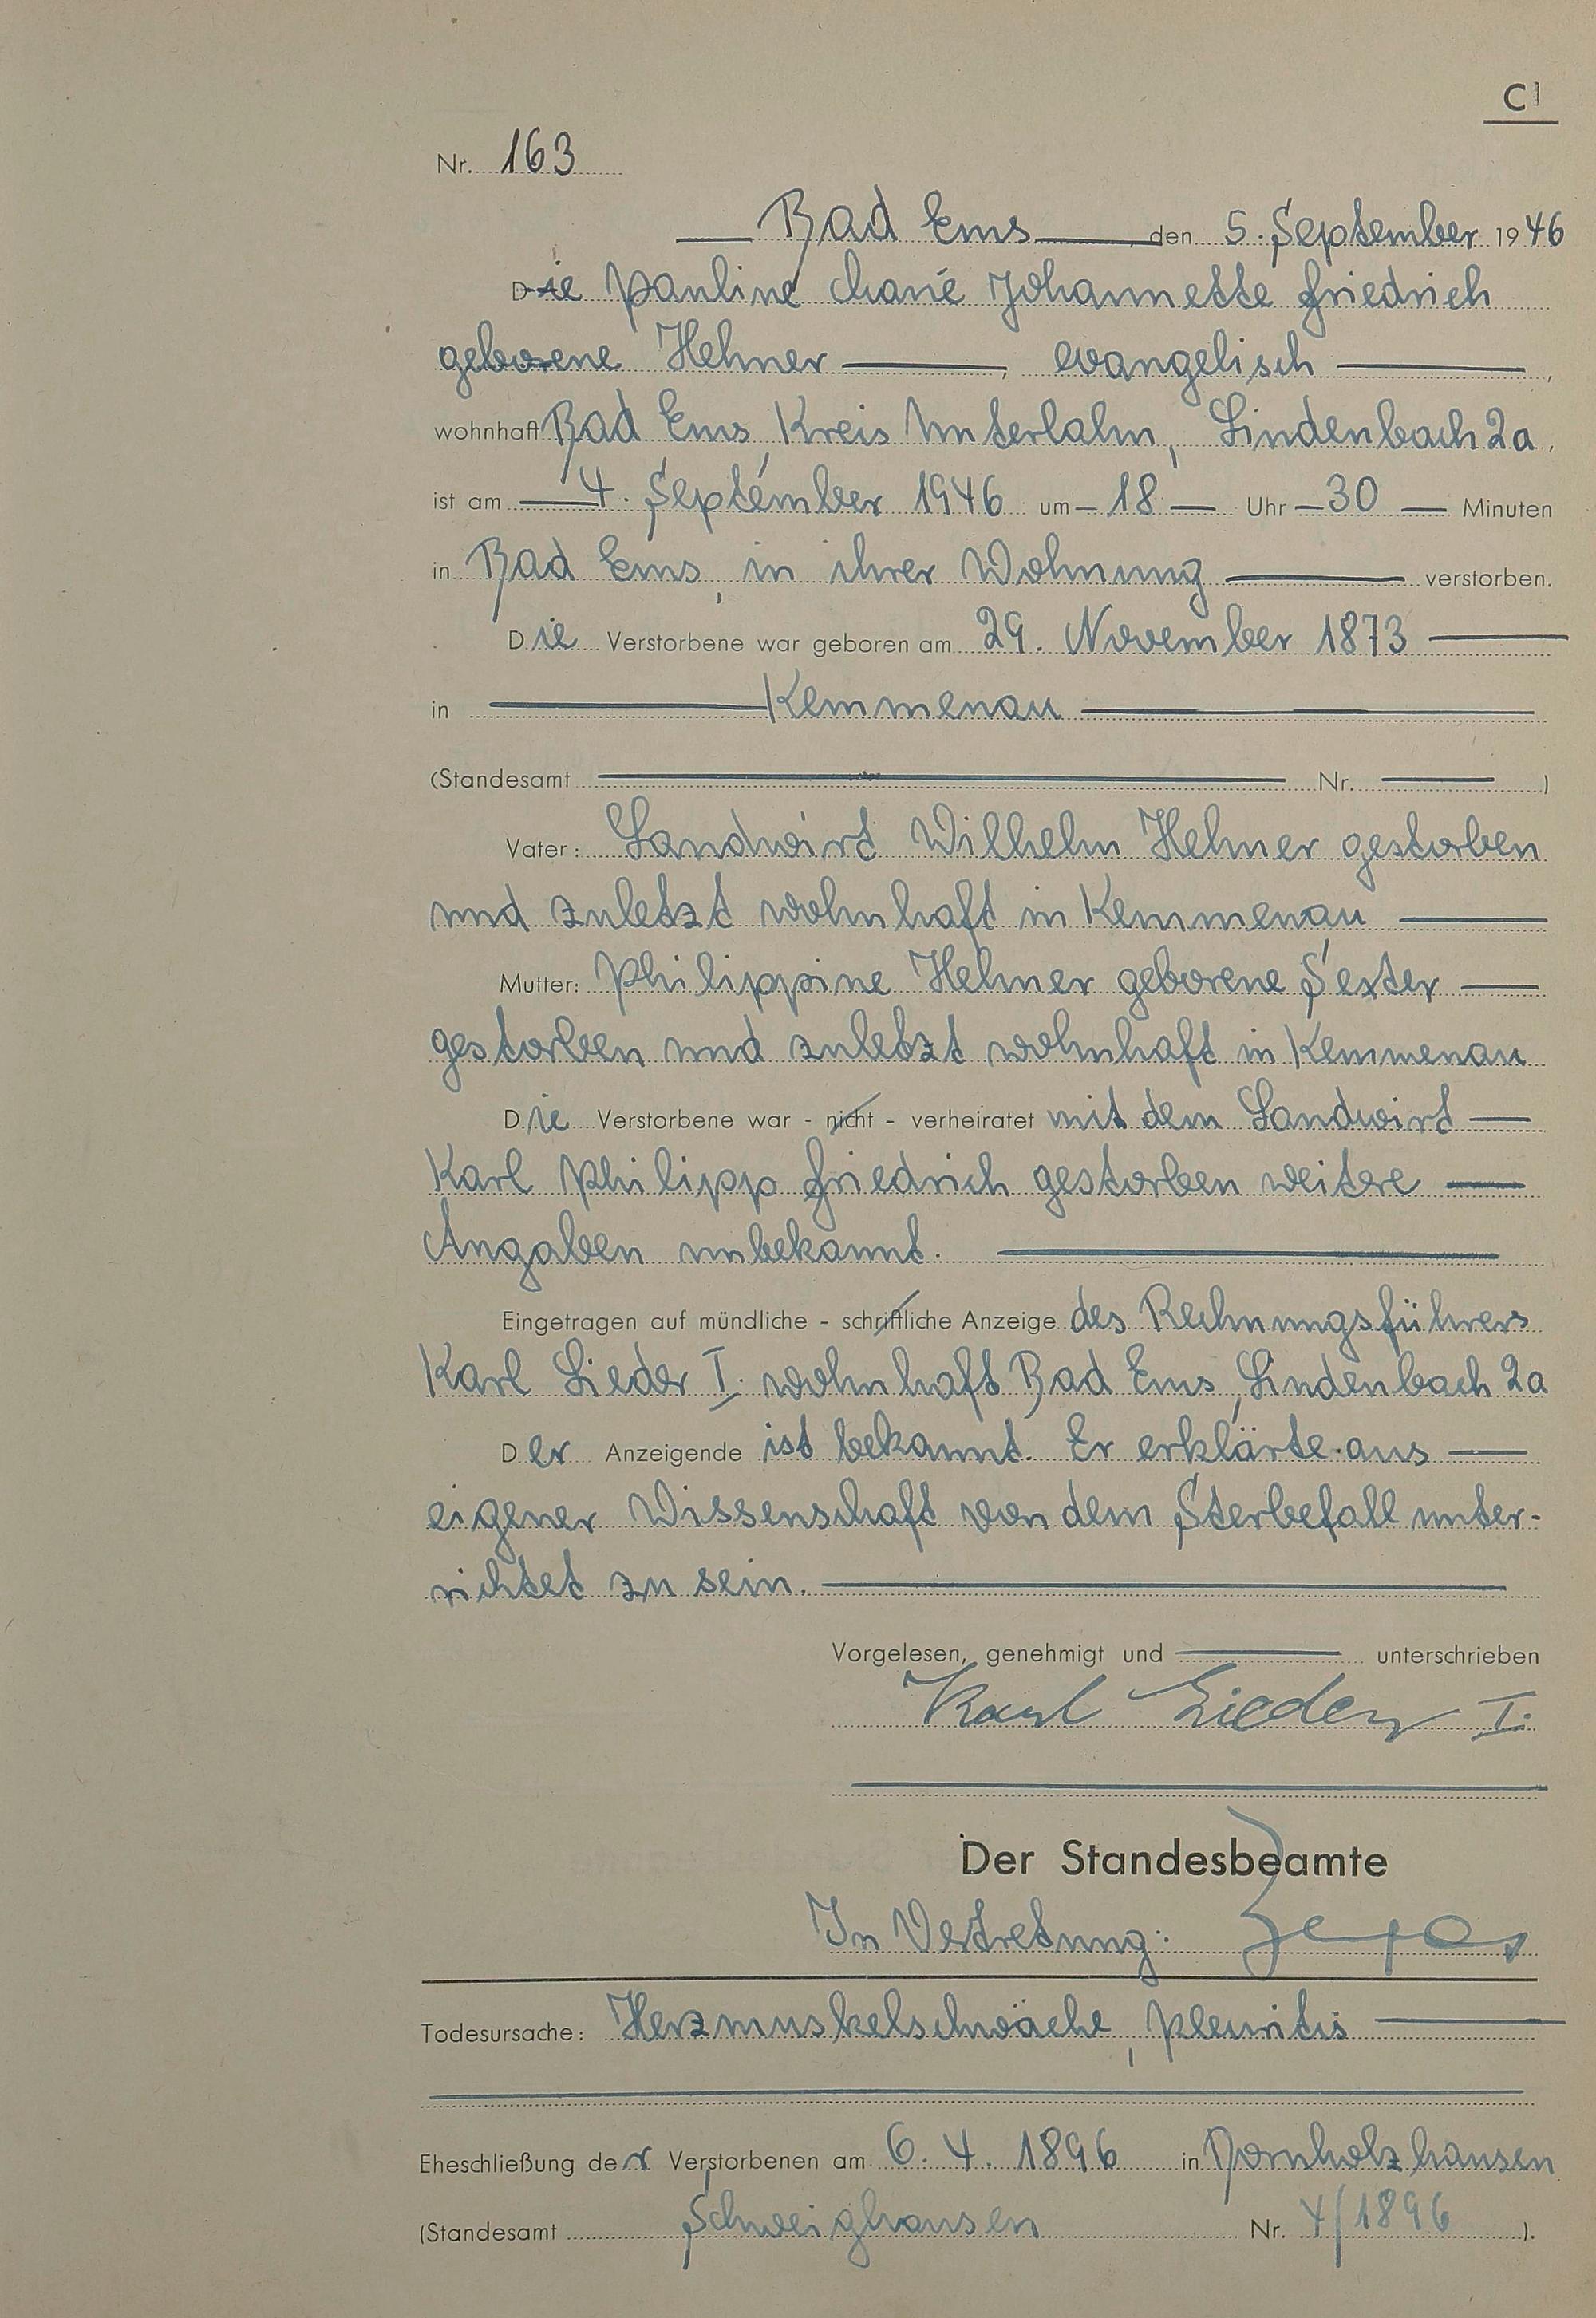 C
Nr. 163
Bad Ems, den 5. September 1946
Die Pauline Marie Johannette Friedrich
geborene Hehner, evangelisch,
wohnhaft Bad Ems, Kreis Unterlahn, Lindenbach 2a,
ist am 4. September 1946 um 18 Uhr 30 Minuten
in Bad Ems, in ihrer Wohnung verstorben.
Die Verstorbene war geboren am 29. November 1873
in Kemmenau
(Standesamt Nr. )
Vater: Landwirt Wilhelm Hehner gestorben
und zuletzt wohnhaft in Kemmenau
Mutter: Philippine Hehner geborene Sexter
gestorben und zuletzt wohnhaft in Kemmenau
Die Verstorbene war - nicht - verheiratet mit dem Landwirt
Karl Philipp Friedrich gestorben weitere
Angaben unbekannt.
Eingetragen auf mündliche - schriftliche Anzeige des Rechnungsführers
Karl Lieder I. wohnhaft Bad Ems, Lindenbach 2a
Der Anzeigende ist bekannt. Er erklärte aus
eigener Wissenschaft von dem Sterbefall unter-
richtet zu sein.
Vorgelesen, genehmigt und unterschrieben
Karl Lieder I.
Der Standesbeamte
In Vertretung:
Todesursache: Herzmuskelschwäche, Pleuritis
Eheschließung der Verstorbenen am 6. 4. 1896 in Dornholzhausen
(Standesamt Schweighausen Nr. 4/1896 ).